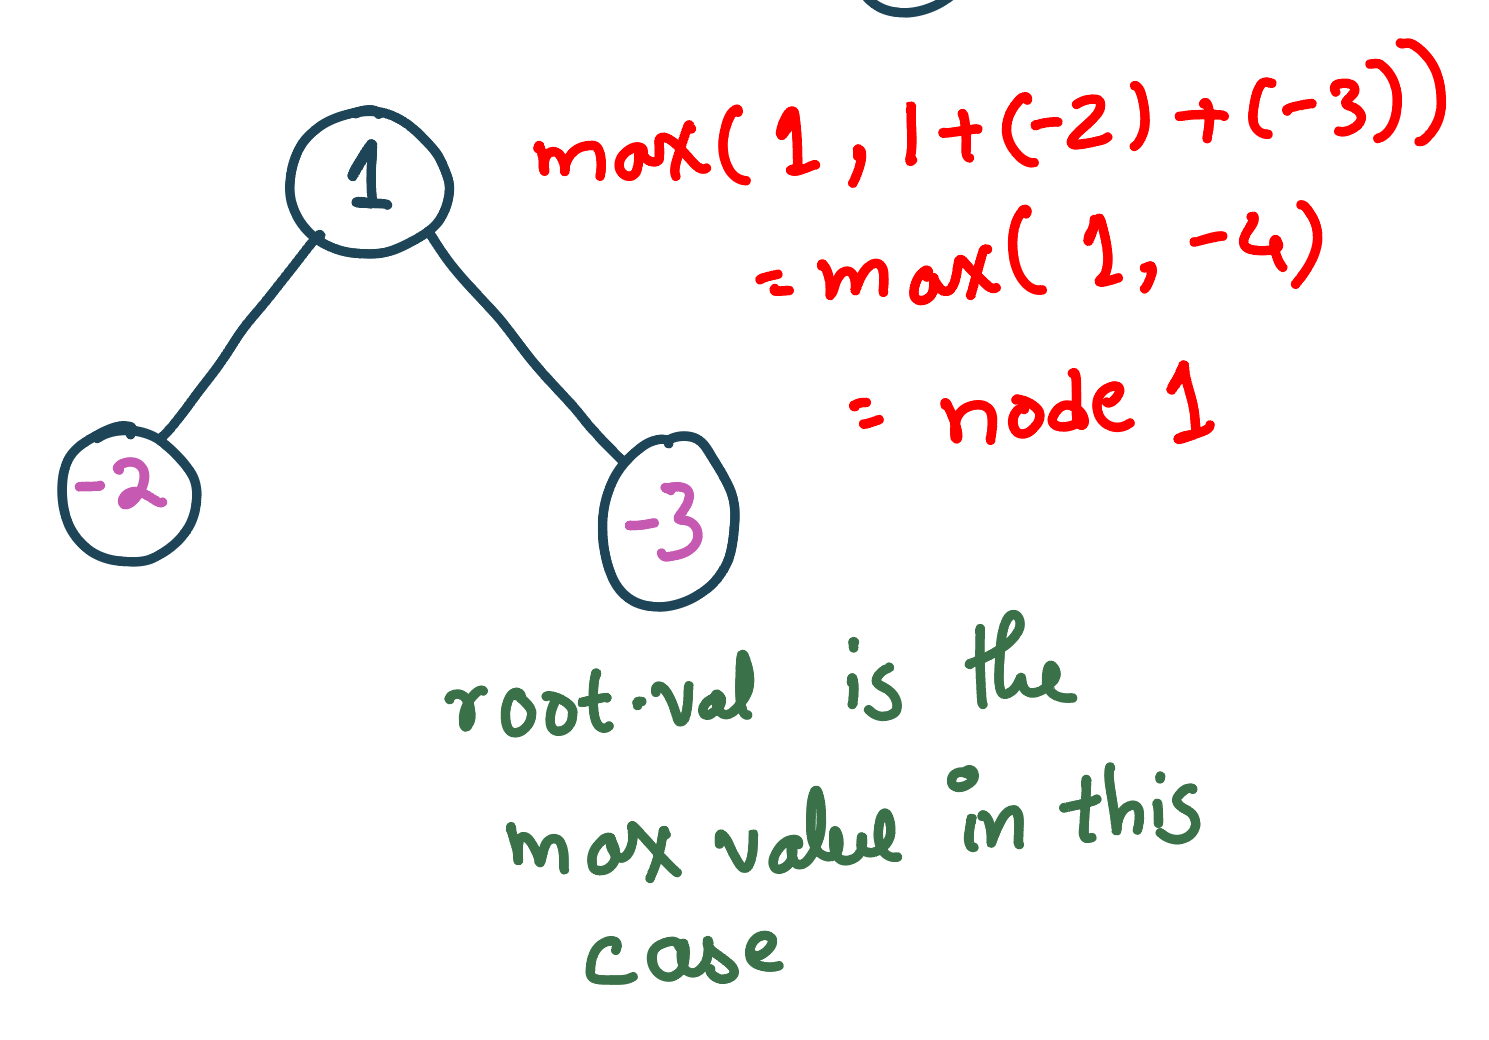 1
max(1, 1+(-2)+(-3))
=max(1,-4)
= node 1
-2
-3
root.val is the
max value in this
case